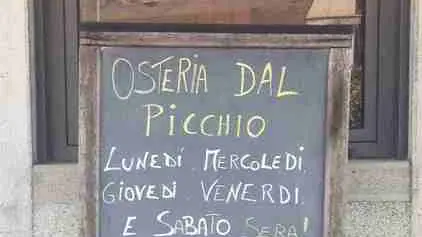 OSTERIA DAL
PICCHIO
LUNEDÍ. MERCOLEDÍ.
GIOVEDÍ. VENERDÍ.
E SABATO SERA!